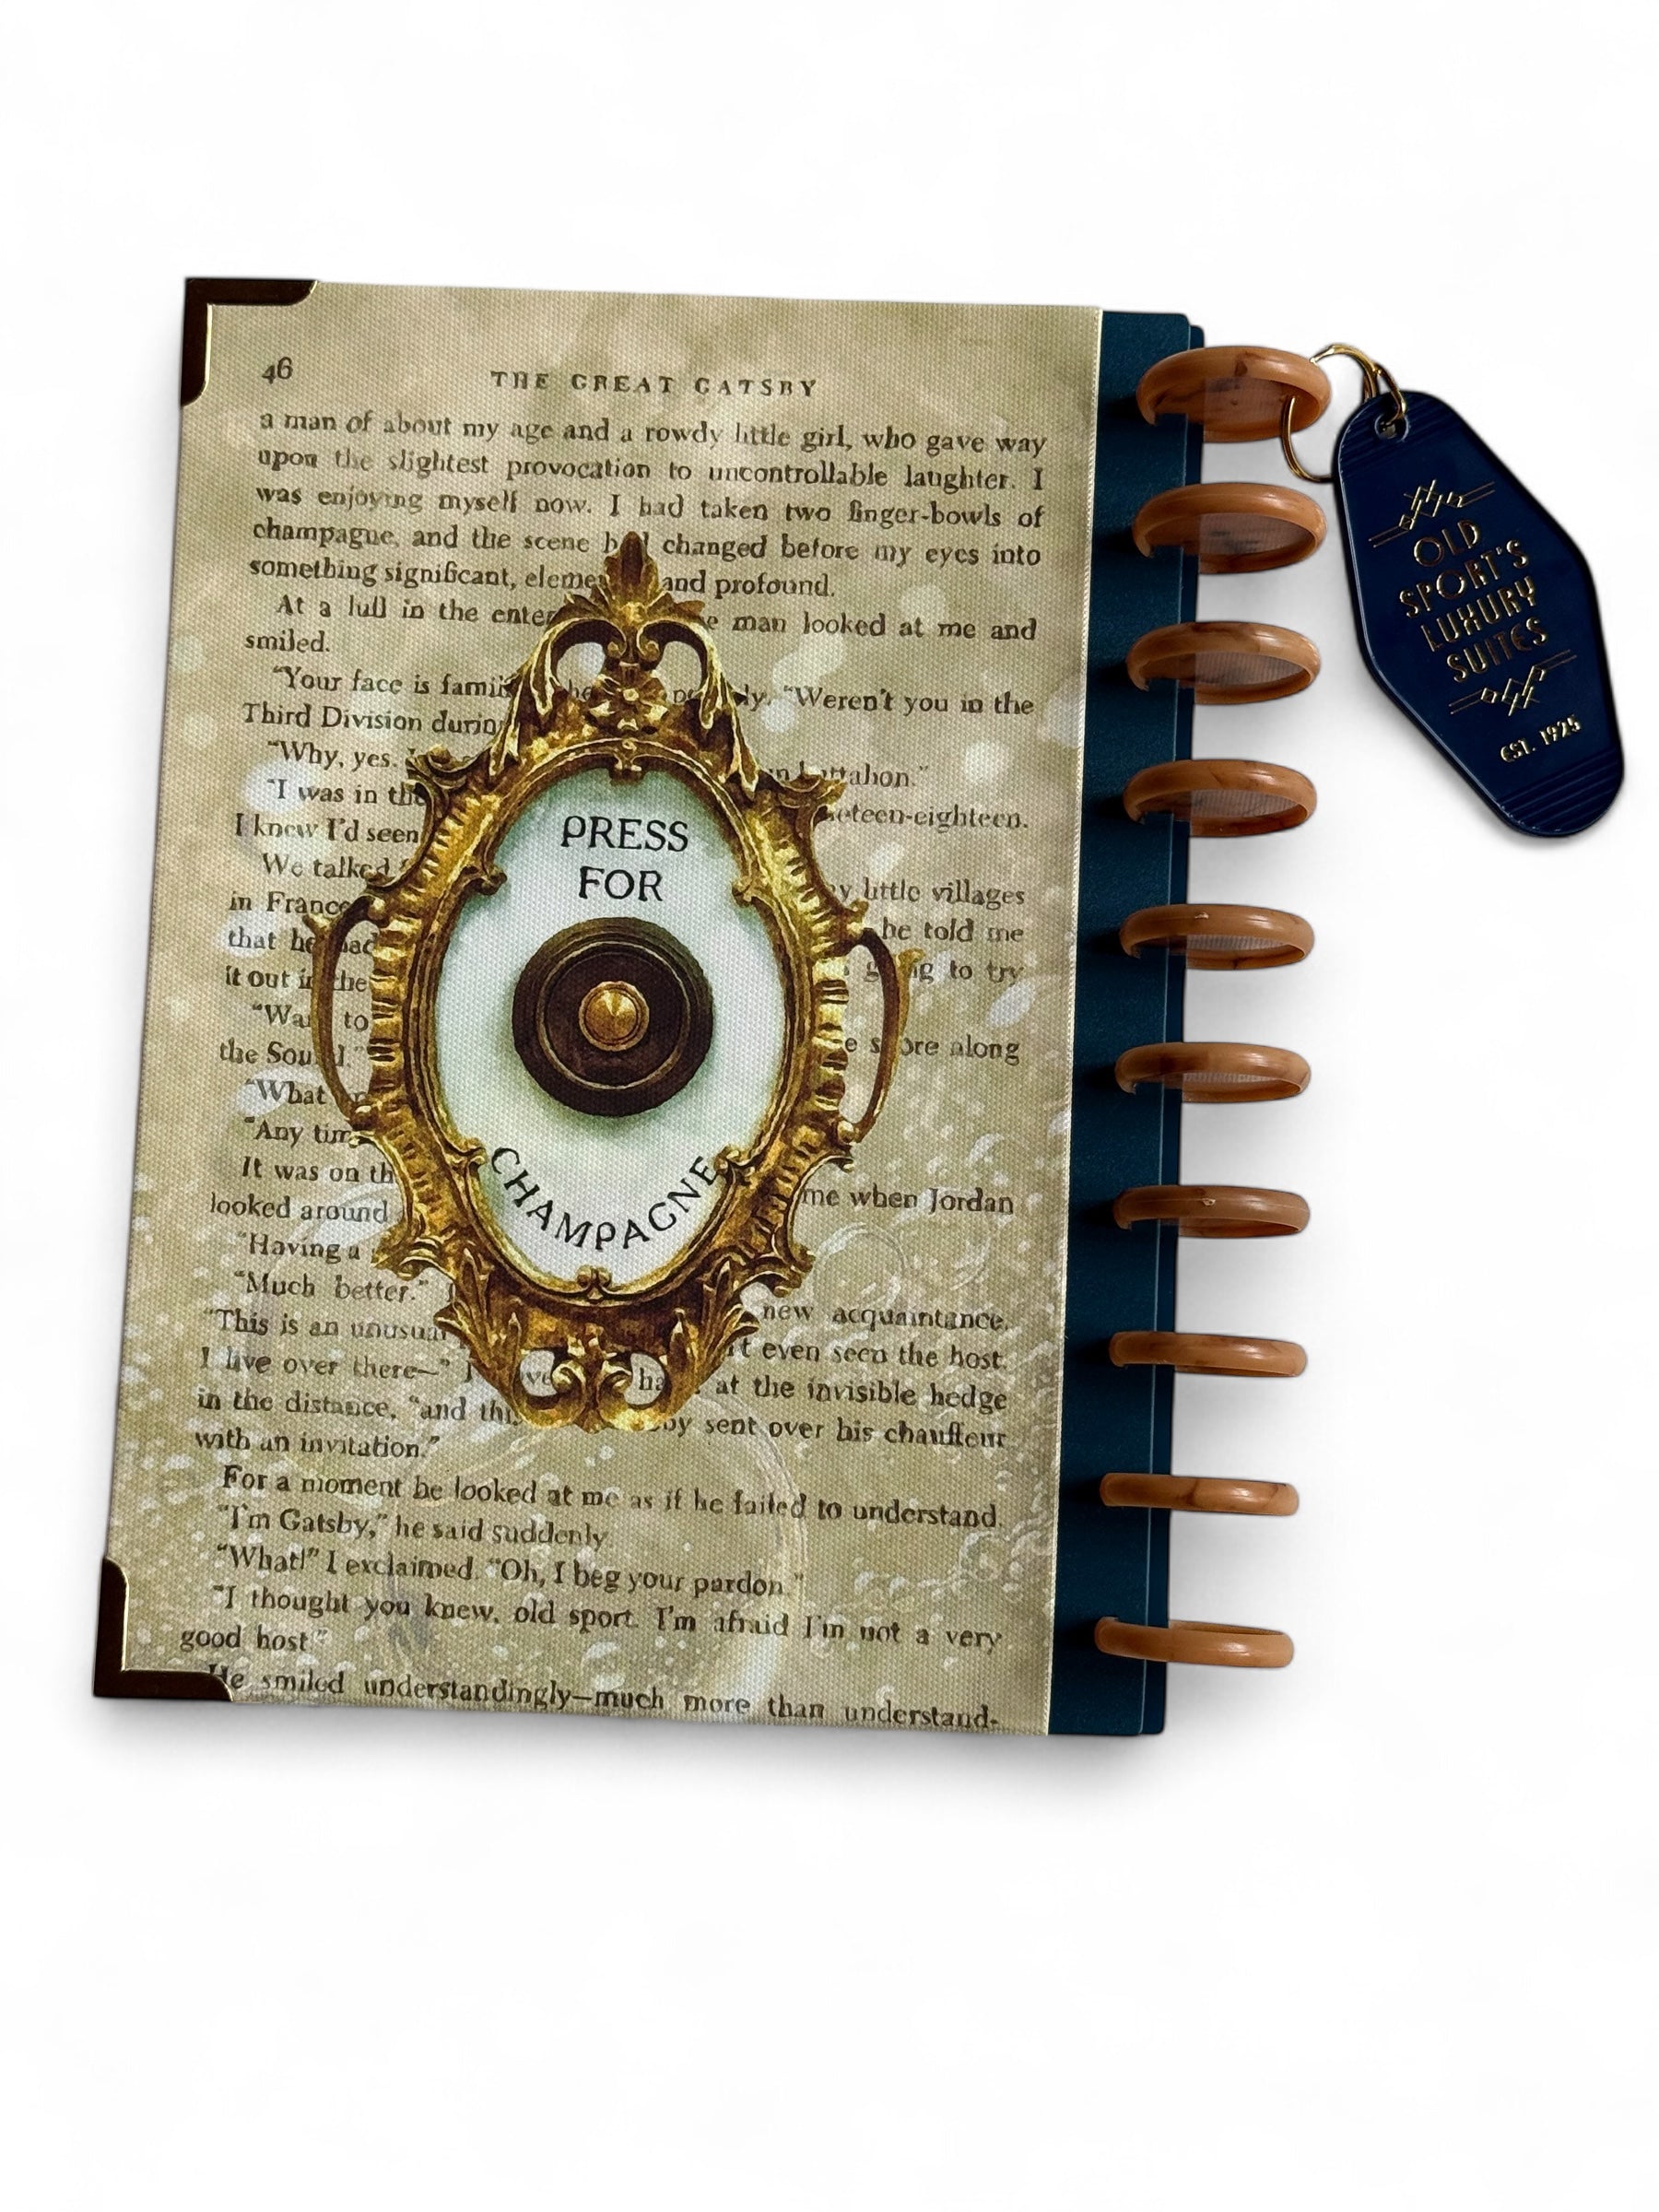 46
THE GREAT GATSBY
a man of about my age and a rowdy little girl, who gave way
upon the slightest provocation to uncontrollable laughter. I
was enjoying myself now. I had taken two finger-bowls of
champagne, and the scene changed before my eyes into
something significant, and profound.
At a lull in the man looked at me and
smiled.
"Your face is "Weren't you in the
Third Division
"Why, yes.
"I was in
I knew I'd seen eighteen.
We talked little villages
in France he told me
that to try
it out
to
the along
"What
"Any
It was on when Jordan
looked around
"Having a
"Much better."
new acquaintance.
"This is an even seen the host.
I live over there—" at the invisible hedge
in the distance, "and sent over his chauffeur
with an invitation."
For a moment he looked at me as if he failed to understand.
"I'm Gatsby," he said suddenly.
"What!" I exclaimed. "Oh, I beg your pardon."
"I thought you knew, old sport. I'm afraid I'm not a very
good host."
He smiled understandingly—much more than understand-
PRESS
FOR
CHAMPAGNE
OLD
SPORT'S
LUXURY
SUITES
EST. 1925